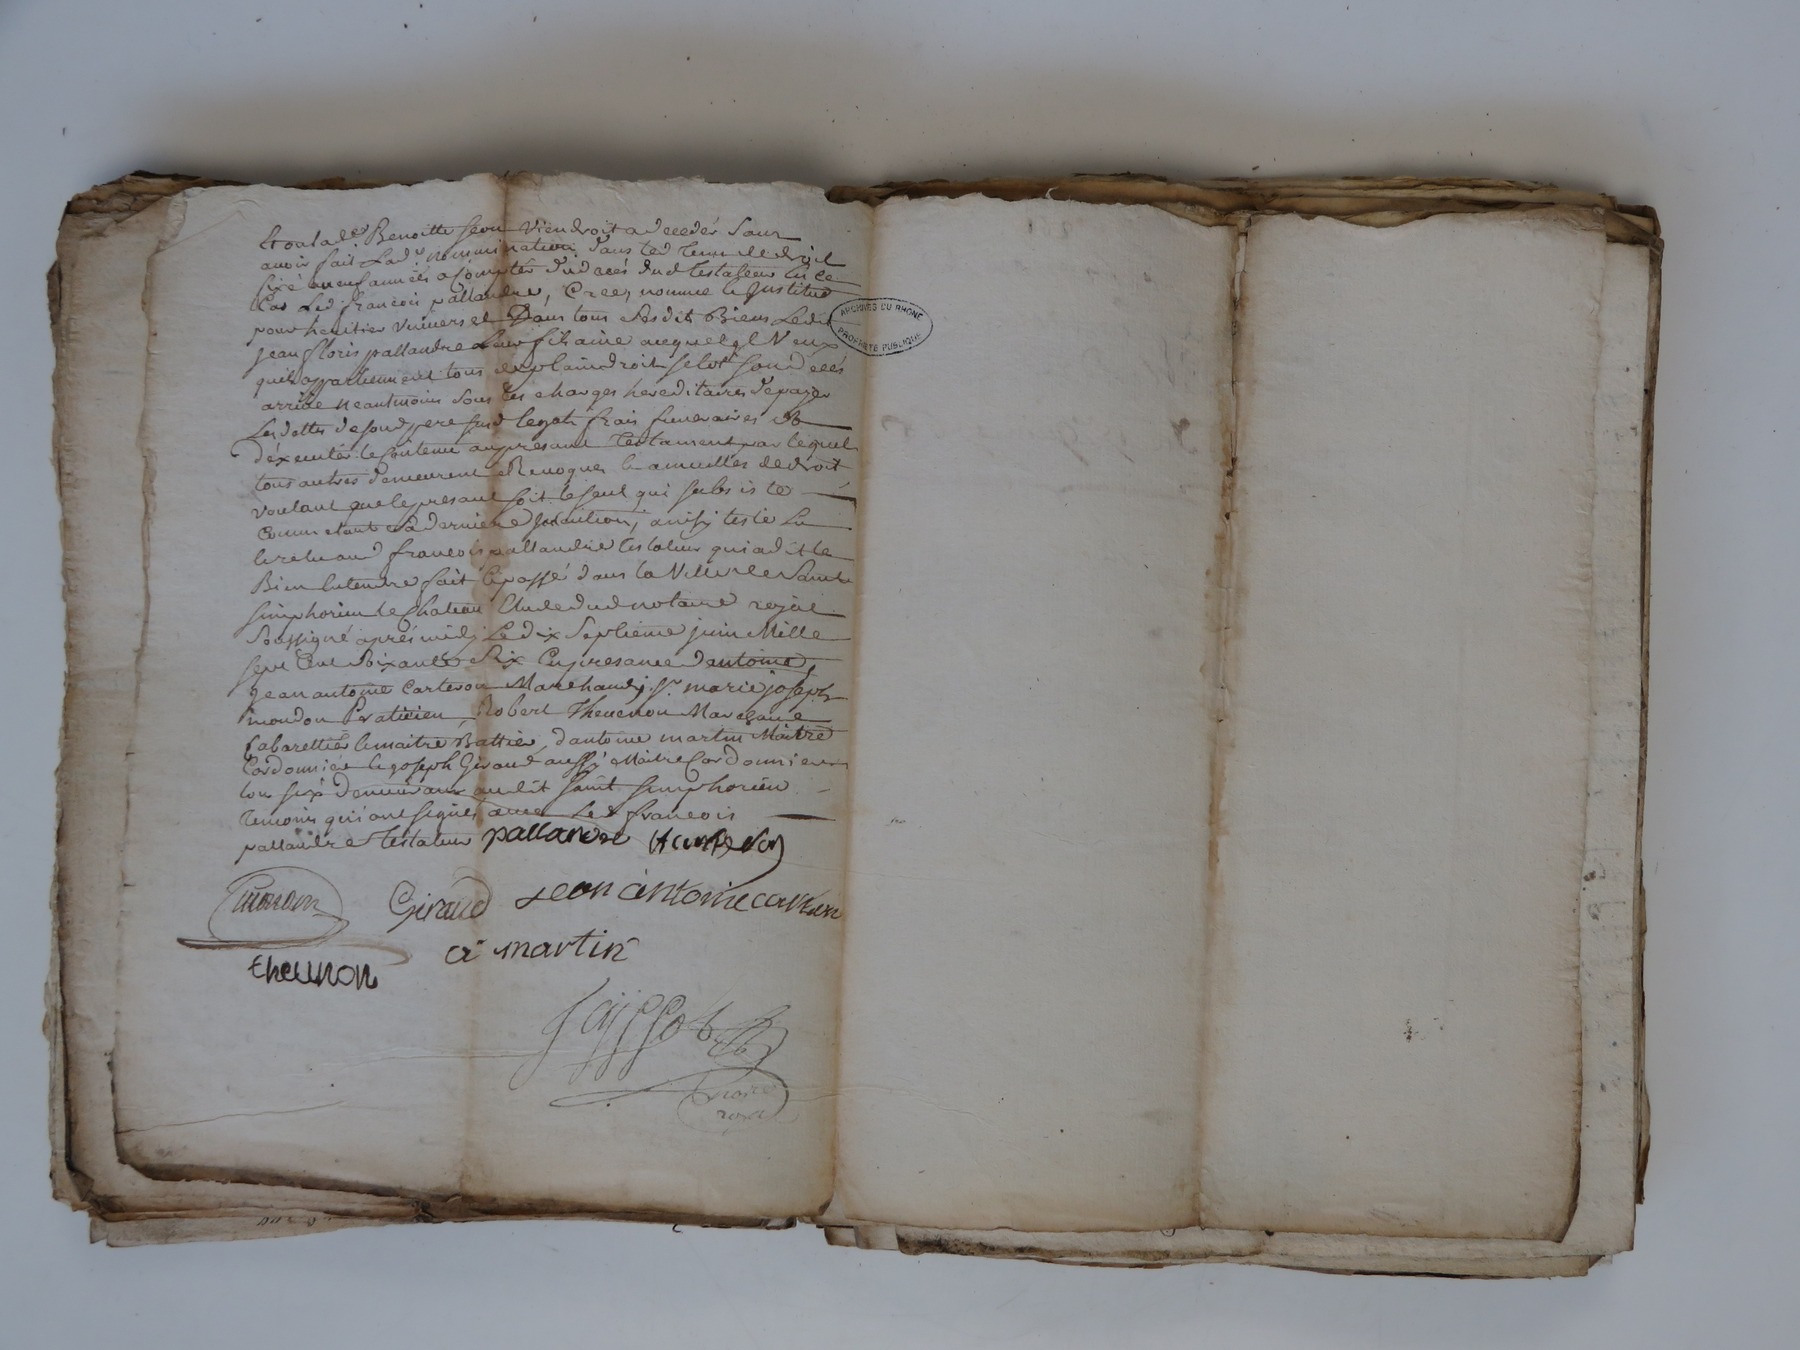 Et ou lad.e Benoitte Seon viendroit a deceder sans
avoir fait lad.e nommination dans led temps de droit
fixé a neuf années a compter du decés dud testateur en ce
Cas led françois pallandre, Crée, nomme et Institue
pour heritier universel Dans tous sesdits Biens ledit
jean floris pallandre leur fils ainé auquel il Veux
quils appartiennent tous de plain droit sitot son decés
arrivé neantmoins sous les charges hereditaires de payer
les dettes de sond pere susd legats frais funeraires &
d'éxecuter le Contenu au présent Testament par lequel
tous autres demeurent Revoques et annullés de droit
voulant que le present soit le seul qui subsiste
Comme étant sa derniere Intention, ainsy testé
francois pallandre testateur qui a dit le
Bien Entendre fait et passé dans la Ville de Saint
simphorien le Chateau Etude dud notaire royal
soussigné aprés midy le dix septieme juin Mille
sept Cent soixante six En presance d'antoine,
jean antoine Carteron Marchand, Sr marie joseph
mondon Praticien, Robert Thevenon Marchand
Cabarettier le maitre Battier, d'antoine martin Maitre
Cordonnier et joseph Giraud aussy Maitre Cordonnier
tous six demeurant audit saint simphorien
temoins qui ont signés avec led francois
pallandre testateur pallandre
mondon Giraud jean antoine carteron
thevenon a martin
nore
royal
ARCHIVES DU RHONE
PROPRIETE PUBLIQUE